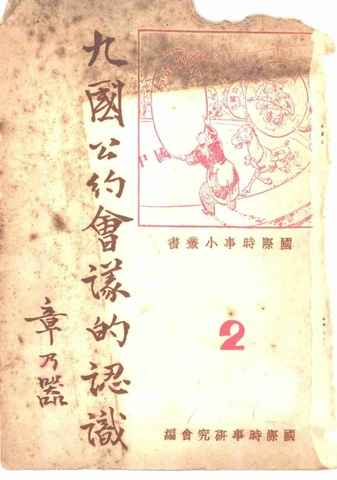 九國公約會議的認識
章乃器
國際時事小叢書
2
國際時事研究會編